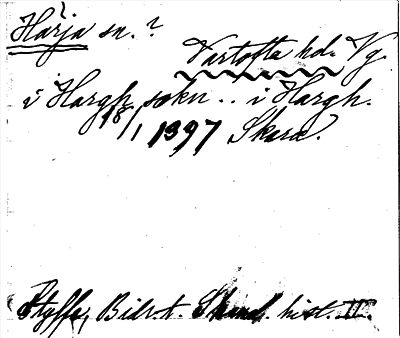 Härja sn. ?
Vartofta hd. Vg.
i Hargh sokn .. i Hargh.
18/1 1397 Skara.
Styffe, Bidr. t. Skand. hist. II.